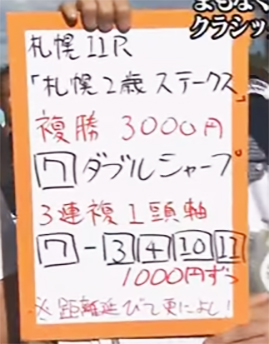 まもなく
クラシッ
札幌11R
「札幌2歳ステークス」
複勝 3000円
7 ダブルシャープ
3連複1頭軸
7-3 4 10 11
1000円ずつ
※距離延びて更によし!